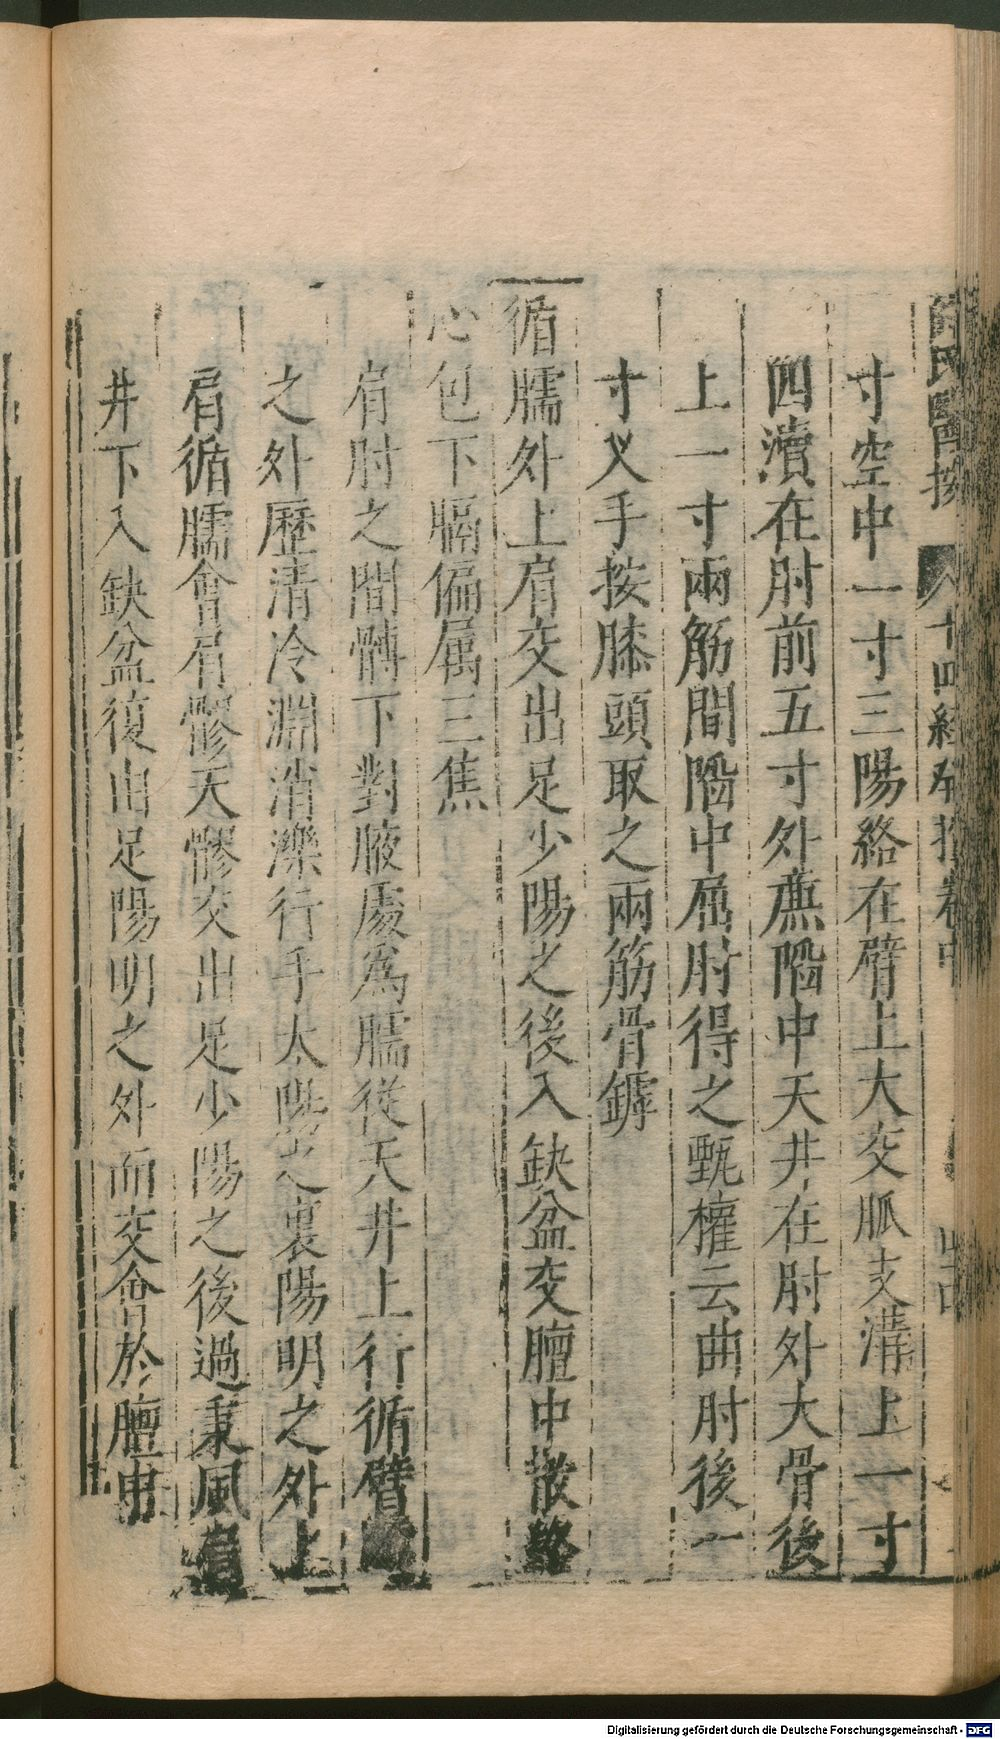 薛氏醫按 十四經發揮卷中
寸空中一寸三陽絡在臂上大交脈支溝上一寸
四瀆在肘前五寸外廉陷中天井在肘外大骨後
上一寸兩筋間陷中屈肘得之甄權云曲肘後一
寸叉手按膝頭取之兩筋骨罅
循臑外上肩交出足少陽之後入缺盆交膻中散絡
心包下膈偏属三焦
肩肘之間髆下對腋處為臑從天井上行循臂
之外歷清冷淵消濼行手太陽之裏陽明之外上
肩循臑會肩髎天髎交出足少陽之後過秉風肩
井下入缺盆復由足陽明之外而交會於膻中
Digitalisierung gefördert durch die Deutsche Forschungsgemeinschaft - DFG